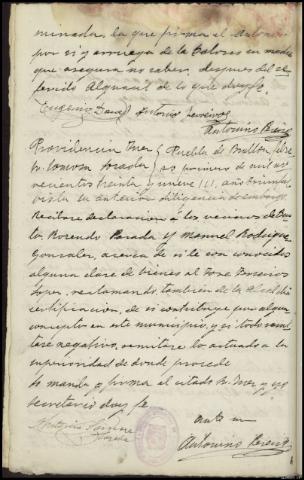 minada, la que firma el Antonio
por si y a ruego de la Dolores su madre
que asegura no saber, despues del re-
ferido Alguacil de lo que doy fe.
Eugenio Antonio
Antonino Perez
Providencia Juez Puebla de Brollon,
a primero de mil no-
vecientos treinta y nueve III, año triunfal
Vista la anterior diligencia de embargo
Recibase declaracion a los vecinos de
Rosendo Parada y Manuel Rodriguez
Gonzalez, acerca de si le son conocidos
alguna clase de bienes al Jose
Lopez, reclamando tambien de la Alcaldia
certificacion, de si contribuye por algun
concepto en este municipio, y si todo resul-
tase negativo, remitase lo actuado a la
superioridad de donde procede
Lo mando y firma el citado Sr Juez y yo
secretario doy fe
ante mi
Antonino Perez